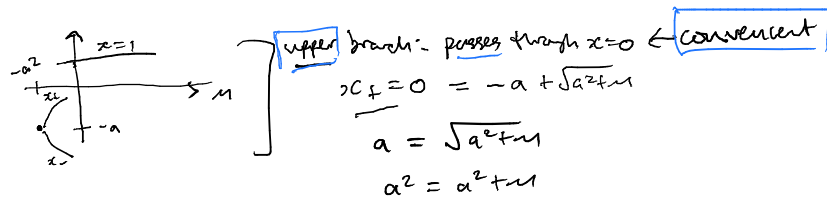 x=1
-a²
x₊
μ
-a
x₋
upper branch:- passes through x=0 ← convenient
x₊=0 = -a + √a²+μ
a = √a²+μ
a² = a²+μ